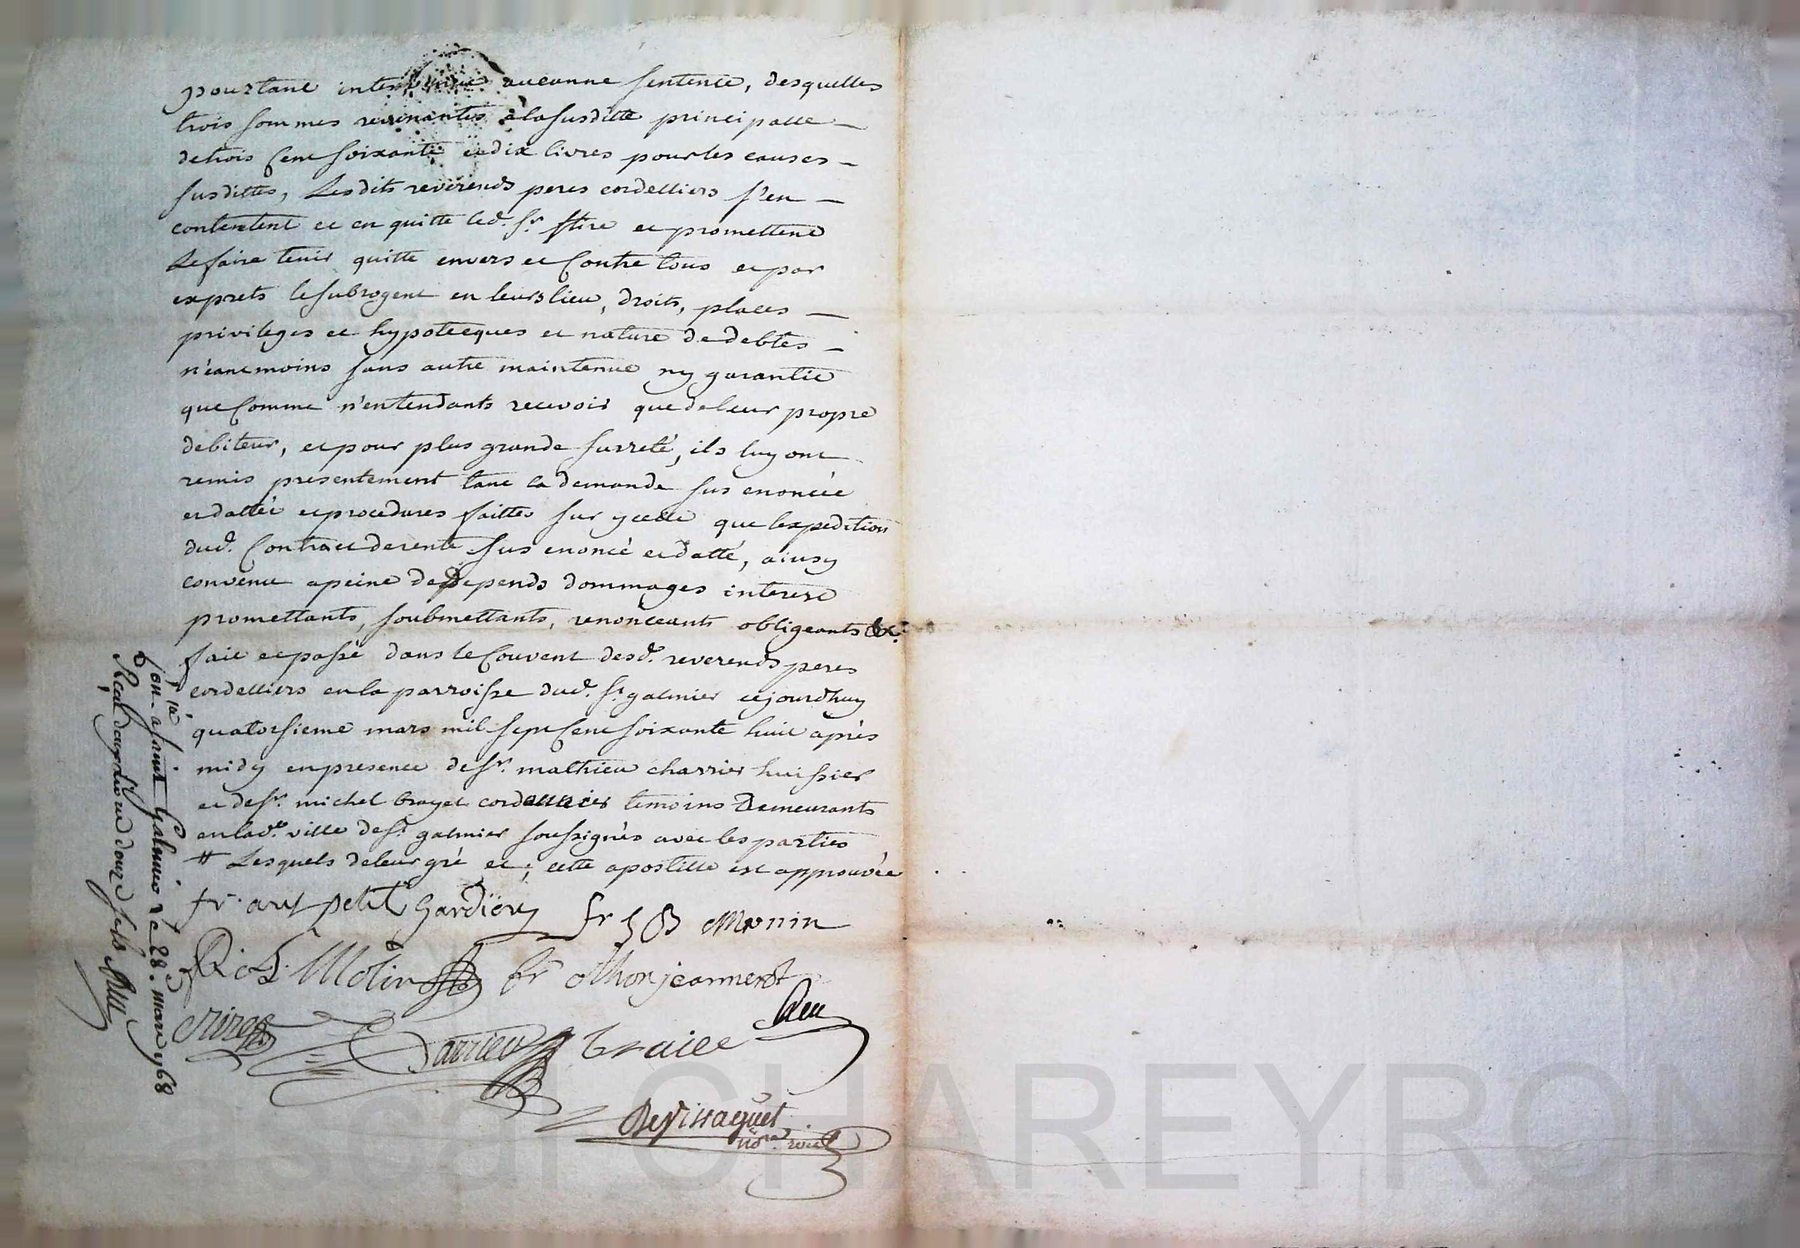 pourtant intervenu aucunne sentence, desquelles
trois sommes revenantes a la susditte principalle
de trois cent soixante et dix livres pour les causes
susdittes, Lesdits reverends peres cordelliers s'en
contentent et en quitte led. Sr. et promettent
Le faire tenir quitte envers et Contre tous et par
exprets le subrogent en leurs lieu, droits, places
privileges et hypotecques et nature de debtes
n'eanmoins sans autre maintenue ny garantie
que Comme n'entendants recevoir que de leur propre
debiteur, et pour plus grande surreté, ils luy ont
remis presentement tant la demande sus enoncée
et dattée et procedures faittes sur ycelle que l'expedition
dud. Contract de rente sus enoncé et datté, ainsy
convenu a peine de depends dommages interest
promettants, soubmettants, renonceants obligeants &c.
fait et passé dans le Couvent desd. reverends peres
cordelliers en la parroisse dud. st galmier cejourdhuy
quatorsieme mars mil sept Cent soixante huit après
midy en presence de sr. mathieu charrier huissier
et de sr. michel brayet temoins Demeurants
en lad. ville de st. galmier soussignés avec les parties
# Lesquels de leur gré et; cette apostille est approuvée
fr. petit Gardien
fr J B Monin
Molin
fr othon jeanneret
Charrier
Notre royal
a saint Galmier le 28 mars 1768